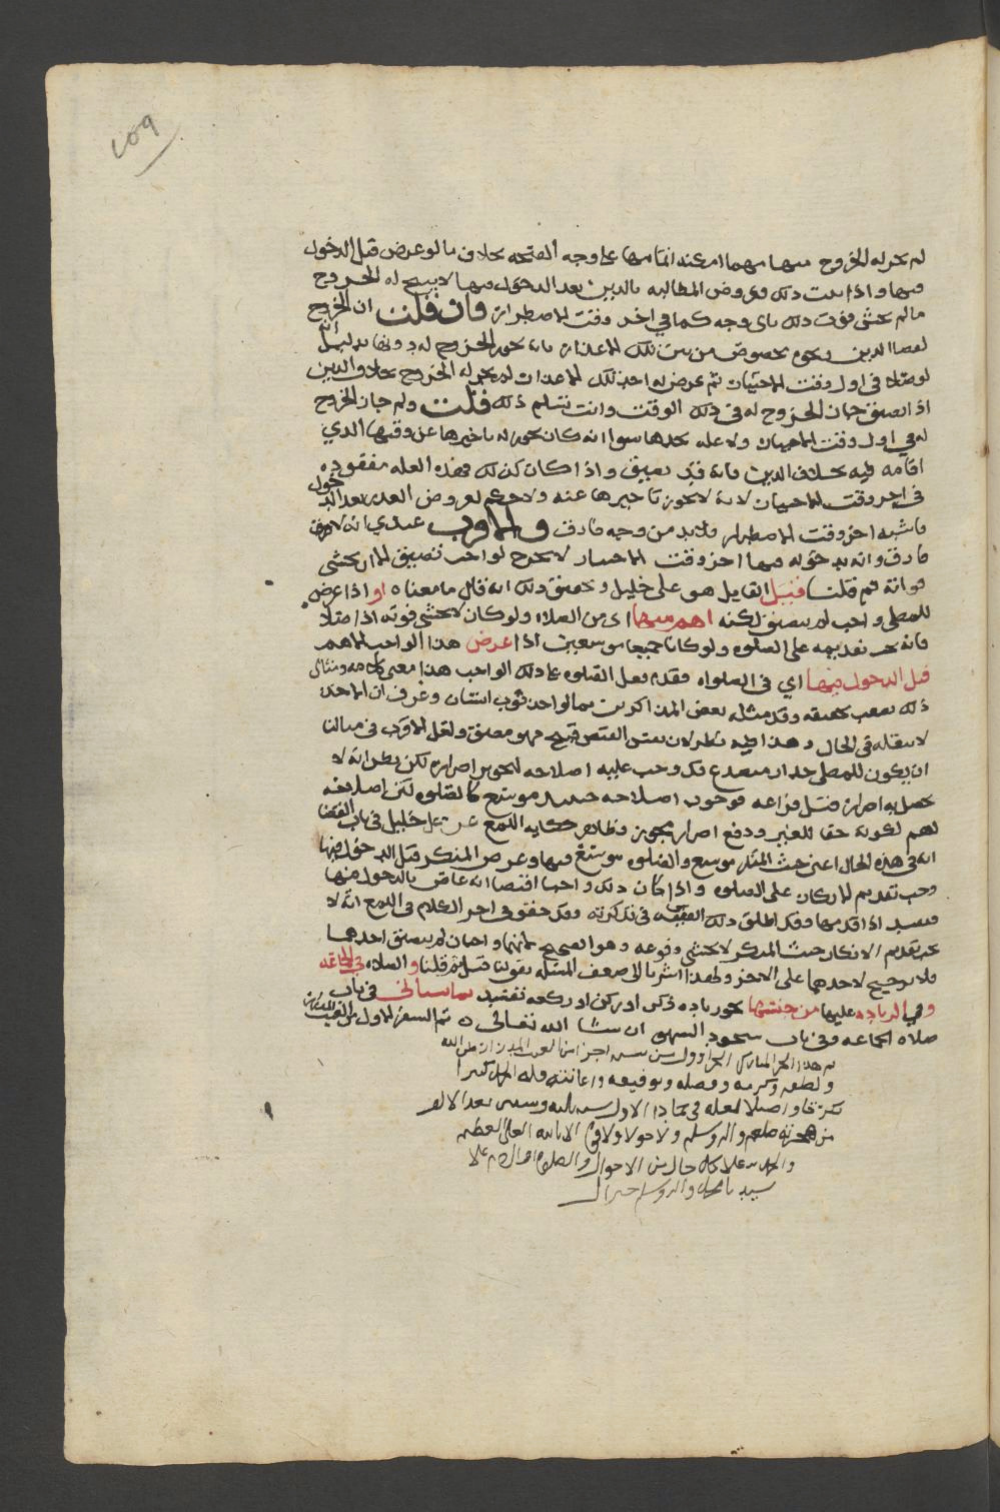 ٢٥٩
لم يجز له الخروج منها مهما امكنه اتمامها على وجه الصحه بخلاف ما لو عرض قبل الدخول
فيها واذا ثبت ذلك فعروض المطالبه بالدين بعد الدخول فيها لا يبيح له الخروج
ما لم يخش فوت ذلك باى وجه كما في اخر وقت الاضطرار فان قلت ان الخروج
لقضا الدين ونحوه مخصوص من بين تلك الاعذار بانه يجوز الخروج له دونها بدليل انه
لو صلاه فى اول وقت الاختيار ثم عرض له احد تلك الاعذار لم يجز له الخروج بخلاف الدين
اذا تضيق جاز الخروج له فى ذلك الوقت وانت تسلم ذلك قلت ولم جاز الخروج
له في اول وقت الاختيار ولا عله نجدها سوا انه كان يجوز له تاخيرها عن وقتها الذي
اقامه فيه بخلاف الدين فانه قد تضيق واذا كان كذلك فهذه العله مفقوده
فى اخر وقت الاختيار لانه لا يجوز تاخيرها عنه ولا حكم لعروض العذر بعد الدخول
فاشبه اخر وقت الاضطرار فلا بد من وجه فارق والاقرب عندي انه لا فرق
فارق وانه بدخوله فيها اخر وقت الاختيار لا يخرج لواجب تضيق الا ان يخشى
فواته ثم قلنا قيل القايل هو على خليل وتحقيق ذلك انه قال ما معناه او اذا عرض
للمصلى واجب لم يتضيق لكنه اهم منها اى من الصلاه ولو كان لا يخشى فوته اذا صلا
فانه يجب تقديمه على الصلوه ولو كانا جميعا موسعين اذا عرض هذا الواجب الاهم
قبل الدخول فيها اي فى الصلواه فقدم فعل الصلوه على ذلك الواجب هذا معنى كلامه ومثال
ذلك يصعب تحقيقه وقد مثله بعض المذاكرين بما لو اخذ ثوب انسان وعرف ان الاخذ
لا ينقله فى الحال وهذا فيه نظر لان نفس القبض قبيح فهو مضيق ولعل الاقرب فى مثالنا
ان يكون للمصلى جدار متصدع قد وجب عليه اصلاحه لتجويز اضراره لكن يظن انه لا
يحصل به اضرار قبل فراغه فوجوب اصلاحه حينئذ موسع كالصلوه لكن اصلاحه
اهم لكونه حقا للغير ودفع اضرار مجوز وظاهر حكايه اللمع عن على خليل فى باب القضا
انه فى هذه الحال اعنى حيث المنكر موسع والصلوه موسع فيها وعرض المنكر قبل الدخول فيها
وجب تقديم الانكار على الصلوه واذا كان ذلك واجبا اقتضا انه عاص بالدخول فيها
فتفسد اذا قدمها وقد اطلق ذلك الفقيه فى تذكرته وقد حقق فى اخر الكلام فى اللمع انه لا
يجب تقديم الانكار حيث المنكر لا يخشى وقوعه وهو الصحيح لانهما واجبان لم يتضيق احدهما
فلا ترجيح لاحدهما على الاخر ولهذا اشرنا الى ضعف المسئله بقولنا قيل ثم قلنا و الصلاه فى الجماعه
وفي الزياده عليها من جنسها نحو زياده ذكر او ركن او ركعه تفسد بما سياتى فى باب
صلاه الجماعه وفى باب سجود السهو ان شا الله تعالى ه تم السفر الاول من الغيث المدرار
تم هذا الجزو المبارك الجزو الاول من اجزا الغيث المدرار بمن الله
ولطفه وكرمه وفضله وتوفيقه واعانته فله الحمد كثيرا
بكرة واصيلا لعله في جمادا الاول سنه وسبعين بعد الالف
من هجرته صلعم واله وسلم ولا حول ولا قوة الا بالله العلى العظيم
والحمد لله على كل حال من الاحوال والصلوة والسلام على
سيدنا محمد واله وسلم